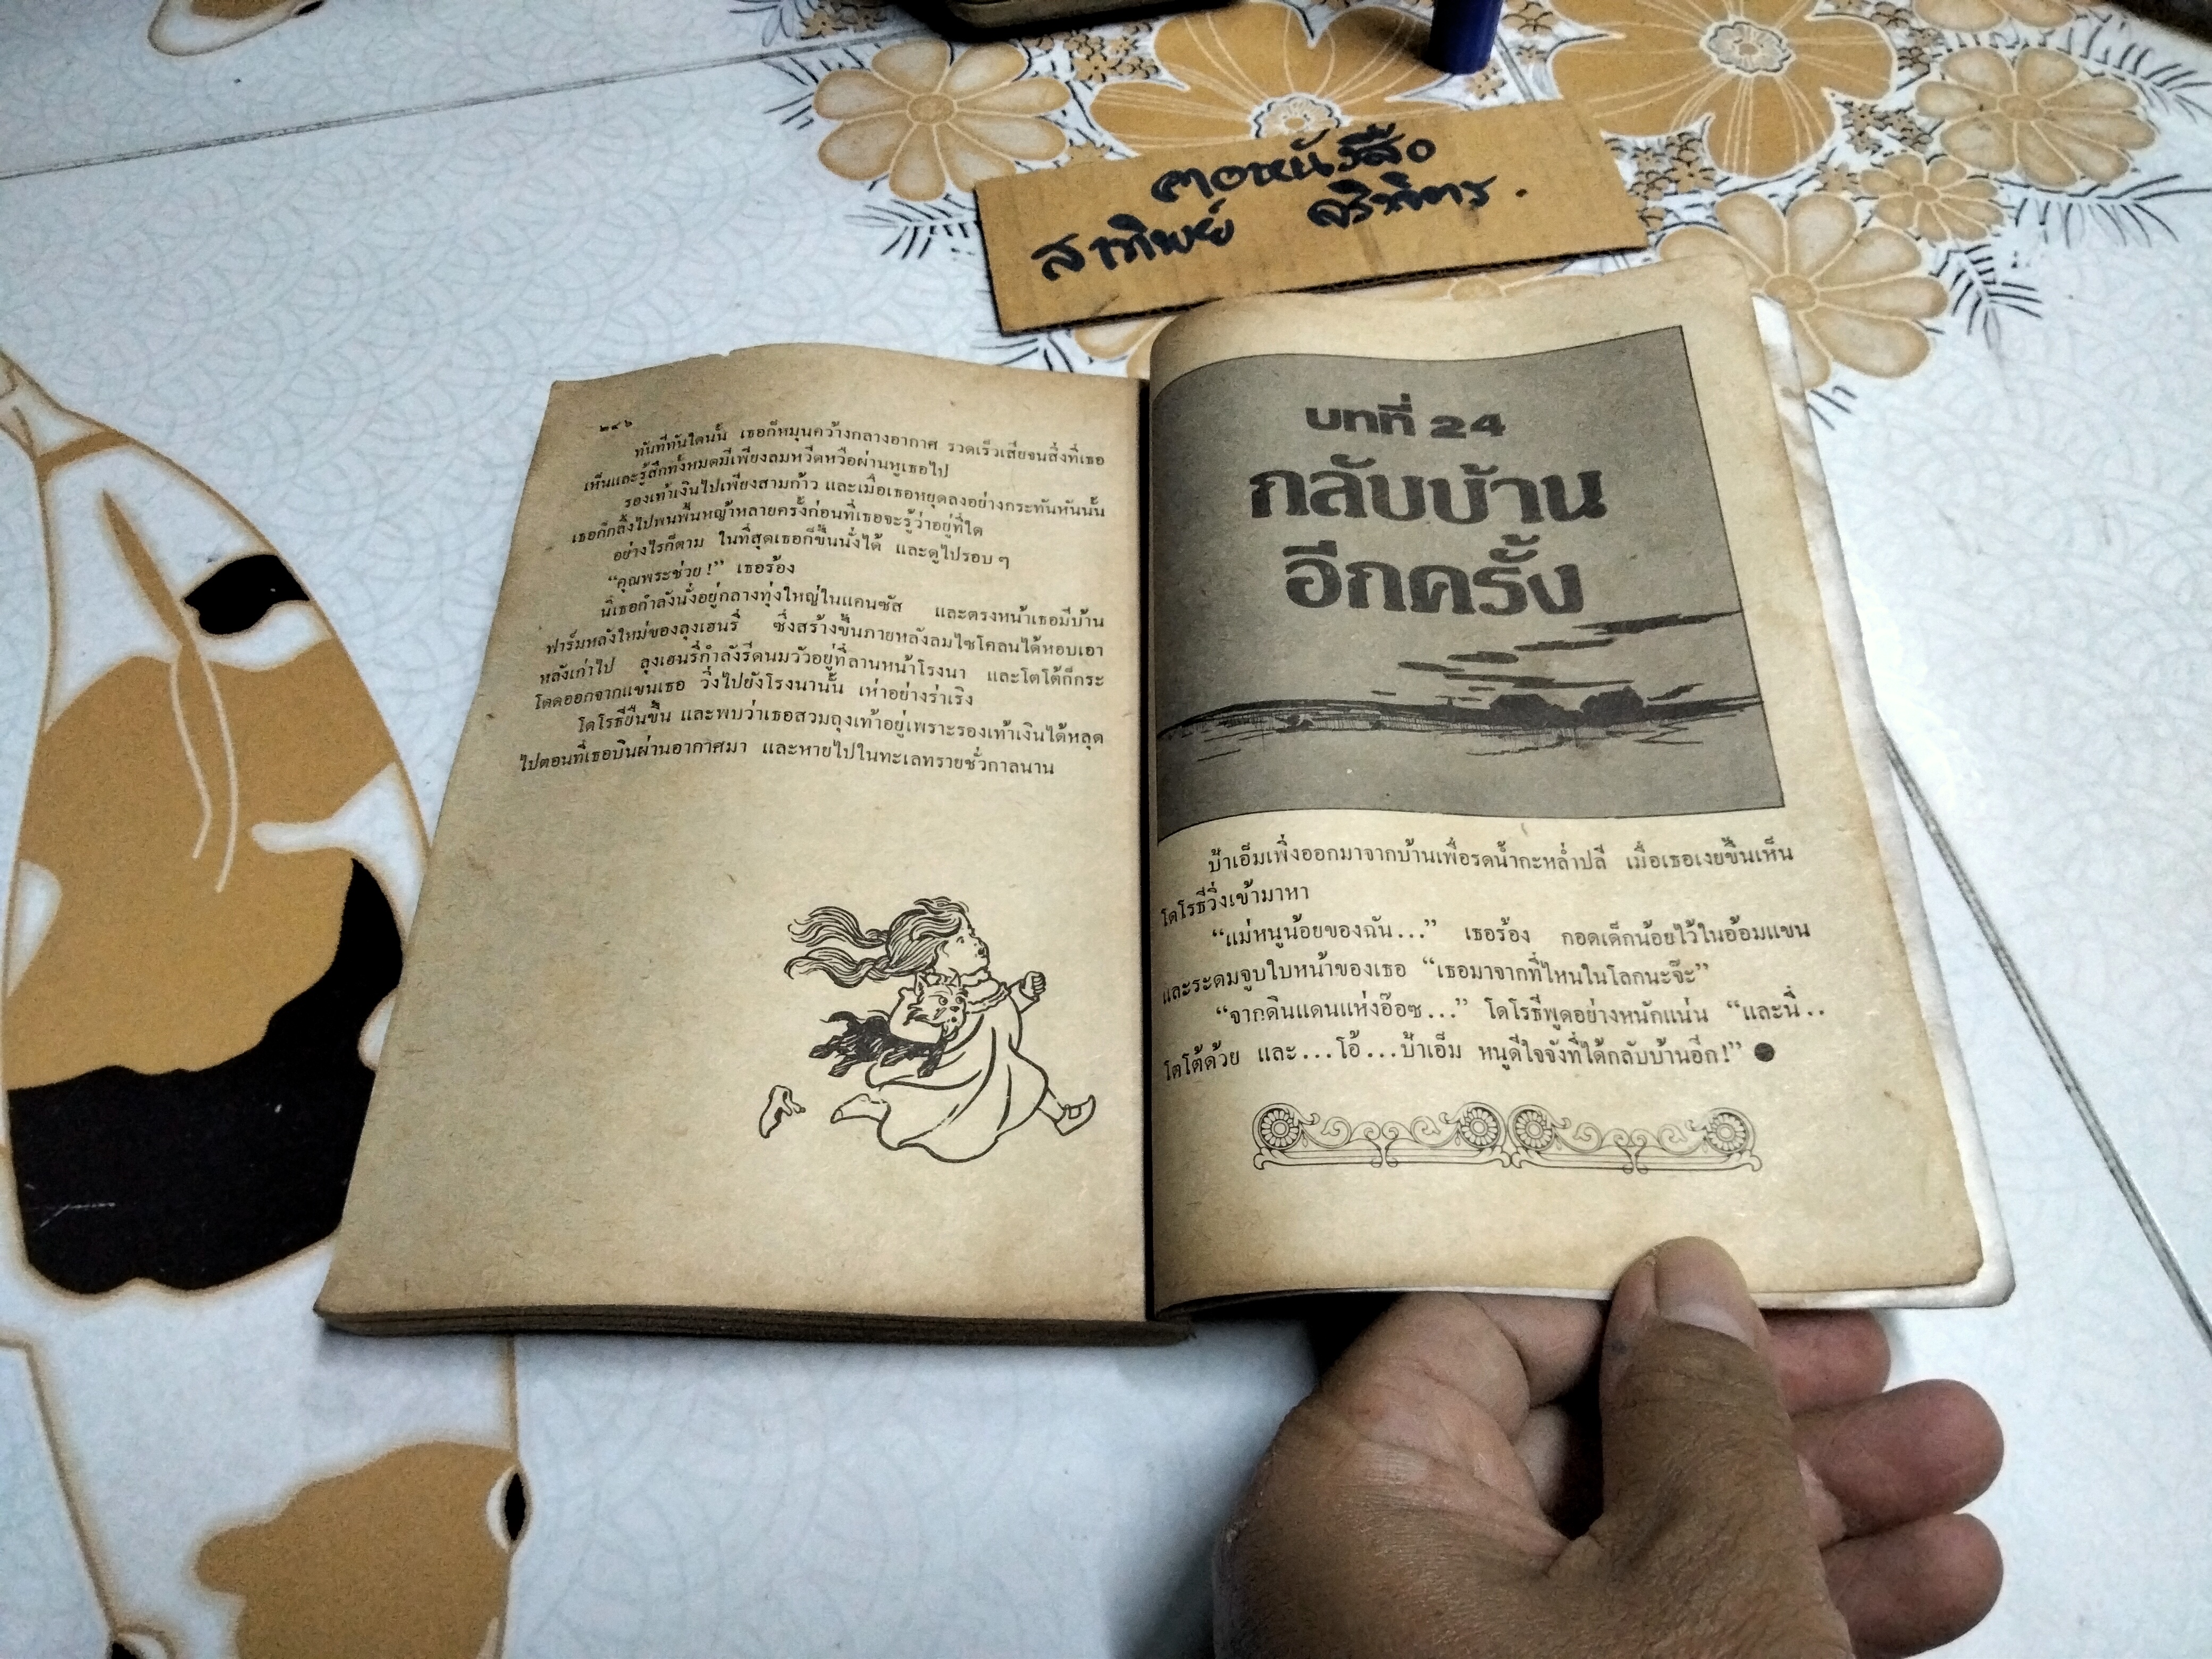 ฅอหนังสือ
สาทิพย์
๒๔๖
ทันทีทันใดนั้น เธอก็หมุนคว้างกลางอากาศ รวดเร็วเสียจนสิ่งที่เธอ
เห็นและรู้สึกทั้งหมดมีเพียงลมหวีดหวือผ่านหูเธอไป
รองเท้าเงินไปเพียงสามก้าว และเมื่อเธอหยุดลงอย่างกระทันหันนั้น
เธอก็กลิ้งไปบนพื้นหญ้าหลายครั้งก่อนที่เธอจะรู้ว่าอยู่ที่ใด
อย่างไรก็ตาม ในที่สุดเธอก็ขึ้นนั่งได้ และดูไปรอบๆ
“คุณพระช่วย!” เธอร้อง
นี่เธอกำลังนั่งอยู่กลางทุ่งใหญ่ในแคนซัส และตรงหน้าเธอมีบ้าน
ฟาร์มหลังใหม่ของลุงเฮนรี่ ซึ่งสร้างขึ้นภายหลังลมไซโคลนได้หอบเอา
หลังเก่าไป ลุงเฮนรี่กำลังรีดนมวัวอยู่ที่ลานหน้าโรงนา และโตโต้ก็กระ
โดดออกจากแขนเธอ วิ่งไปยังโรงนานั้น เห่าอย่างร่าเริง
โดโรธียืนขึ้น และพบว่าเธอสวมถุงเท้าอยู่เพราะรองเท้าเงินได้หลุด
ไปตอนที่เธอบินผ่านอากาศมา และหายไปในทะเลทรายชั่วกาลนาน
บทที่ 24
กลับบ้าน
อีกครั้ง
ป้าเอ็มเพิ่งออกมาจากบ้านเพื่อรดน้ำกะหล่ำปลี เมื่อเธอเงยขึ้นเห็น
โดโรธีวิ่งเข้ามาหา
“แม่หนูน้อยของฉัน...” เธอร้อง กอดเด็กน้อยไว้ในอ้อมแขน
และระดมจูบใบหน้าของเธอ “เธอมาจากที่ไหนในโลกนะจ๊ะ”
“จากดินแดนแห่งอ๊อซ...” โดโรธีพูดอย่างหนักแน่น “และนี่..
โตโต้ด้วย และ...โอ้...ป้าเอ็ม หนูดีใจจังที่ได้กลับบ้านอีก!”